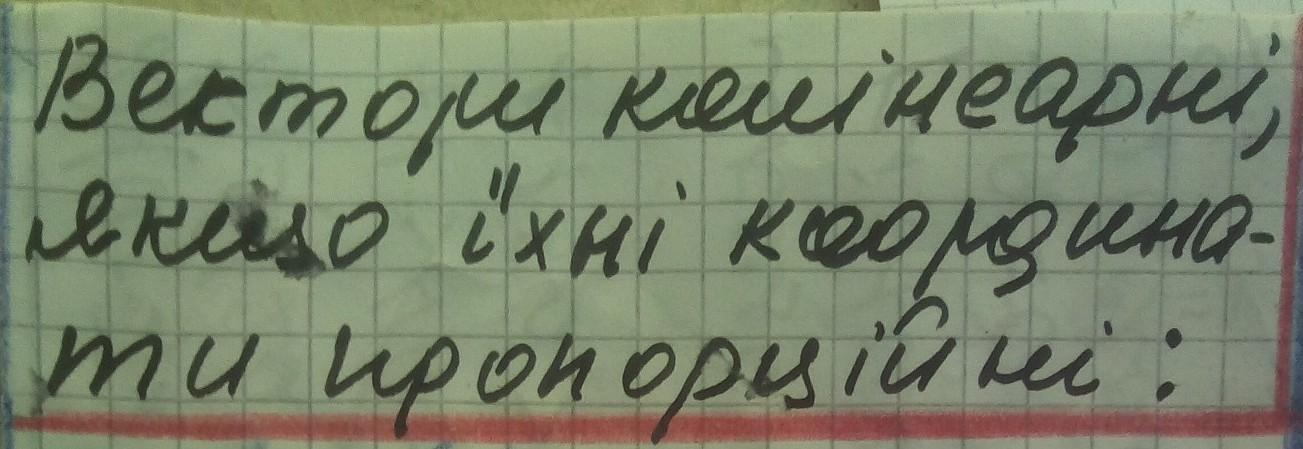 Вектори колінеарні,
якщо їхні координа-
ти пропорційні: